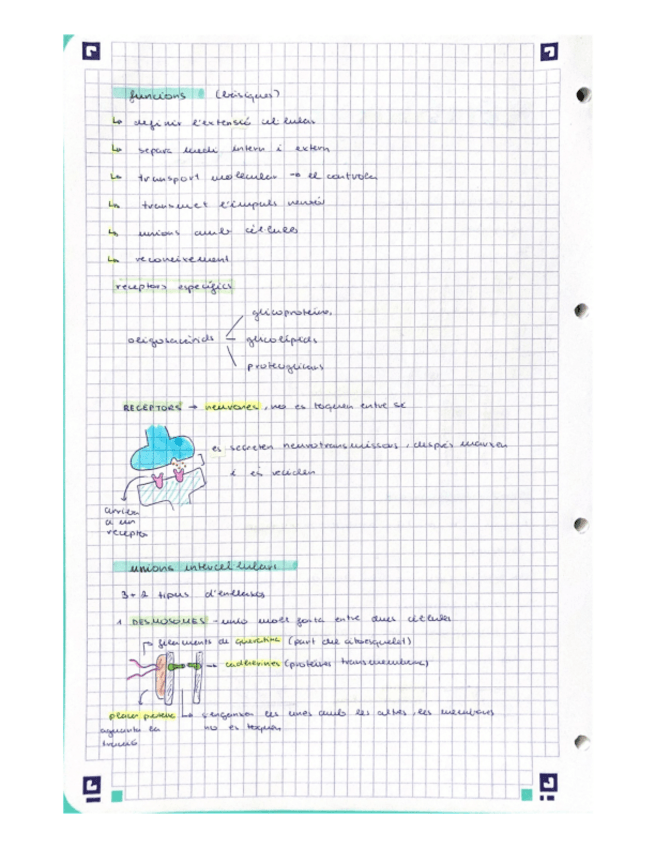 funcions (bàsiques)
↳ definir l'extensió cel·lular
↳ separa medi intern i extern
↳ transport molecular → el controla
↳ transmet l'impuls nerviós
↳ unions amb cèl·lules
↳ reconeixement
receptors específics
glicoproteïnes
oligosacàrids glucolípids
proteoglicans
RECEPTORS → neurones, no es toquen entre se
es secreten neurotransmissors, després marxen
i es reciclen
arriba
a un
receptor
unions intercel·lulars
3+2 tipus d'enllaços
1 DESMOSOMES - unió molt forta entre dues cèl·lules
filaments de queratina (part del citoesquelet)
→ cadherines (proteïnes transmembrana)
placa proteica ↳ s'enganxen les unes amb les altres, les membranes
aguanta la no es toquen